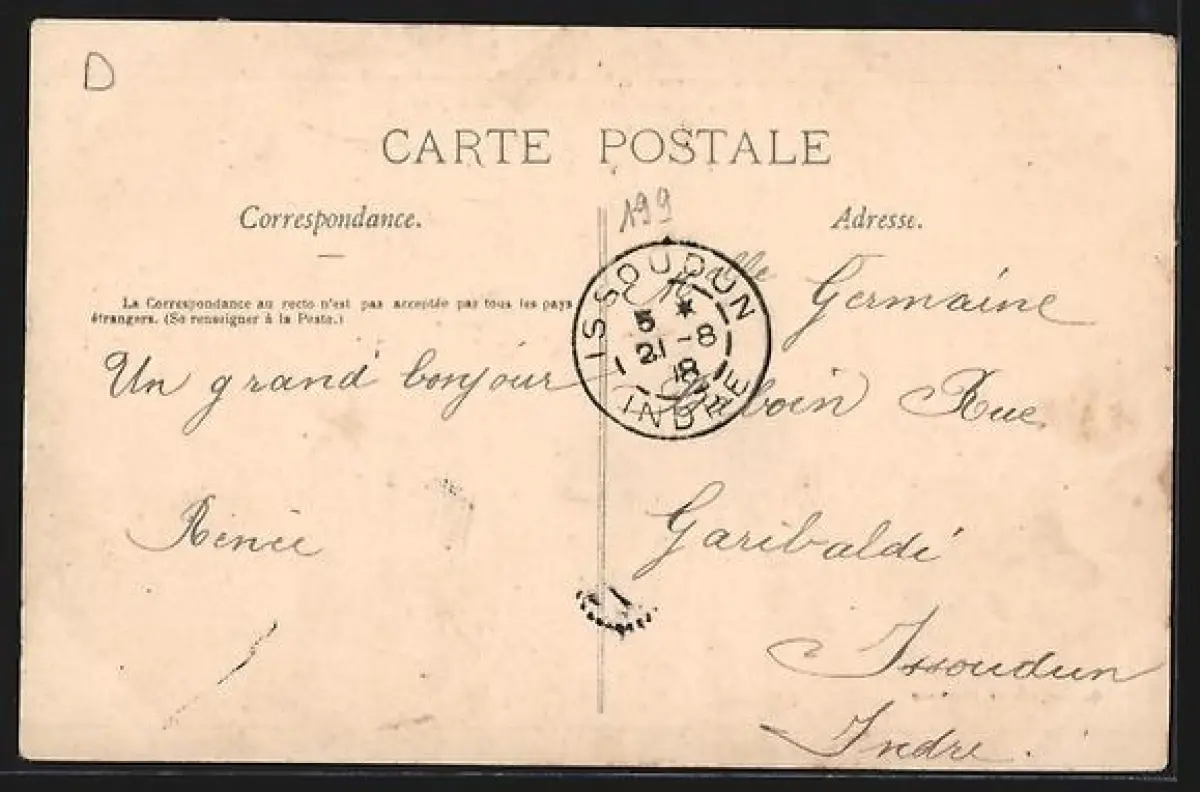 D
CARTE POSTALE
199
Correspondance.
La Correspondance au recto n'est pas acceptée par tous les pays
étrangers. (Se renseigner à la Poste.)
Un grand bonjour
Renée
Adresse.
Mlle Germaine
Rue
Garibaldi
Issoudun
Indre.
ISSOUDUN
5 *
21 - 8
INDRE